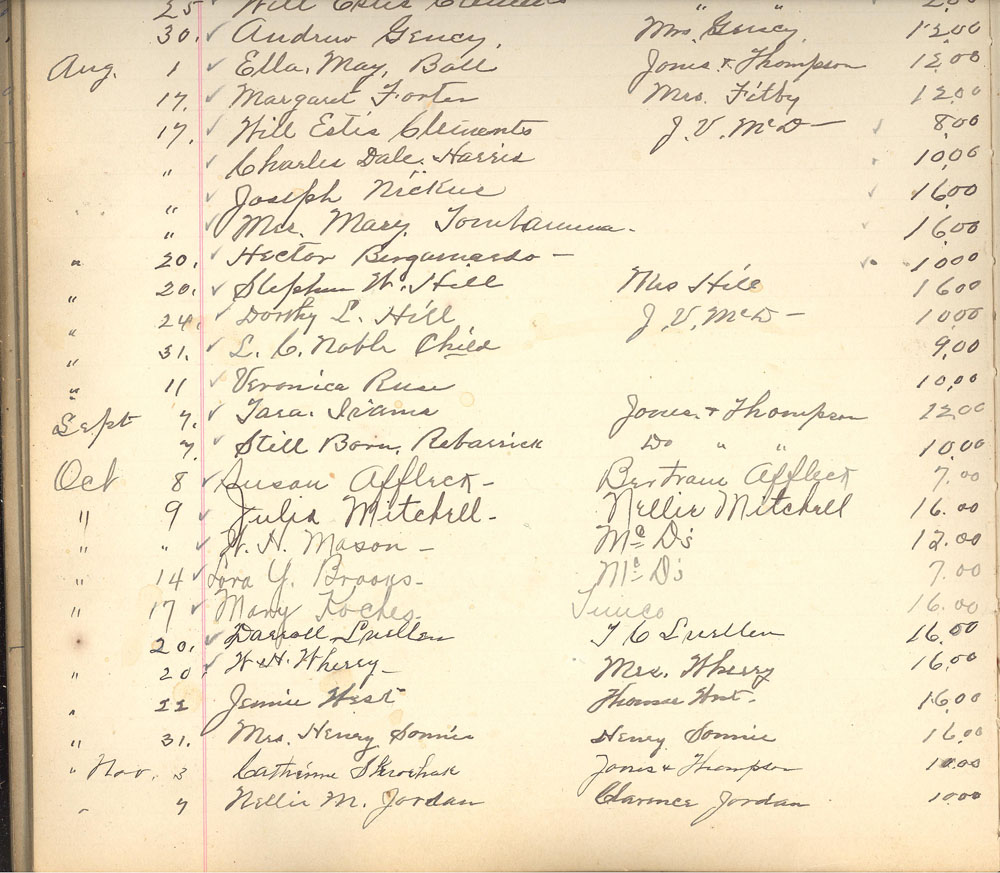 25 Will Estis Clements " " 2.00
30. Andrew Gency. Mrs. Gency. 12.00
Aug. 1 Ella. May. Ball Jones & Thompson 12.00
17. Margaret Forten Mrs. Fitby 12.00
17. Will Estis Clements J. V. McD— 8.00
" Charles Dale. Harris 10.00
Joseph Nickus 16.00
" " Mrs. Mary. 16.00
" 20. Hector Bergamasdo — 10.00
" 20. Stephen W. Hill Mrs Hill 16.00
" 24. Dorthy L. Hill J. V. McD — 10.00
" 31. L. C. Noble Child 9.00
" 11 Veronica Ruse 10.00
Sept 7. Tara. Jones & Thompson 12.00
7. Still Born. Rebarrick Do " " 10.00
Oct 8 Susan Affleck - Bertram Affleck 7.00
" 9 Julia Mitchell - Nellie Mitchell 16.00
" " W. H. Mason — McDs 12.00
" 14 Lora Y. Brooks - McDs 7.00
" 17 Mary Koches. 16.00
20. Darrell Luellen T C Luellen 16.00
" 20. W. H. Wherry — Mrs. Wherry 16.00
" 22 Jennie West Thomas West. 16.00
" 31. Mrs. Henry Sonnie Henry Sonnie 16.00
" Nov. 3 Catherine Jones & Thompson 10.00
" 7 Nellie M. Jordan Clarence Jordan 10.00